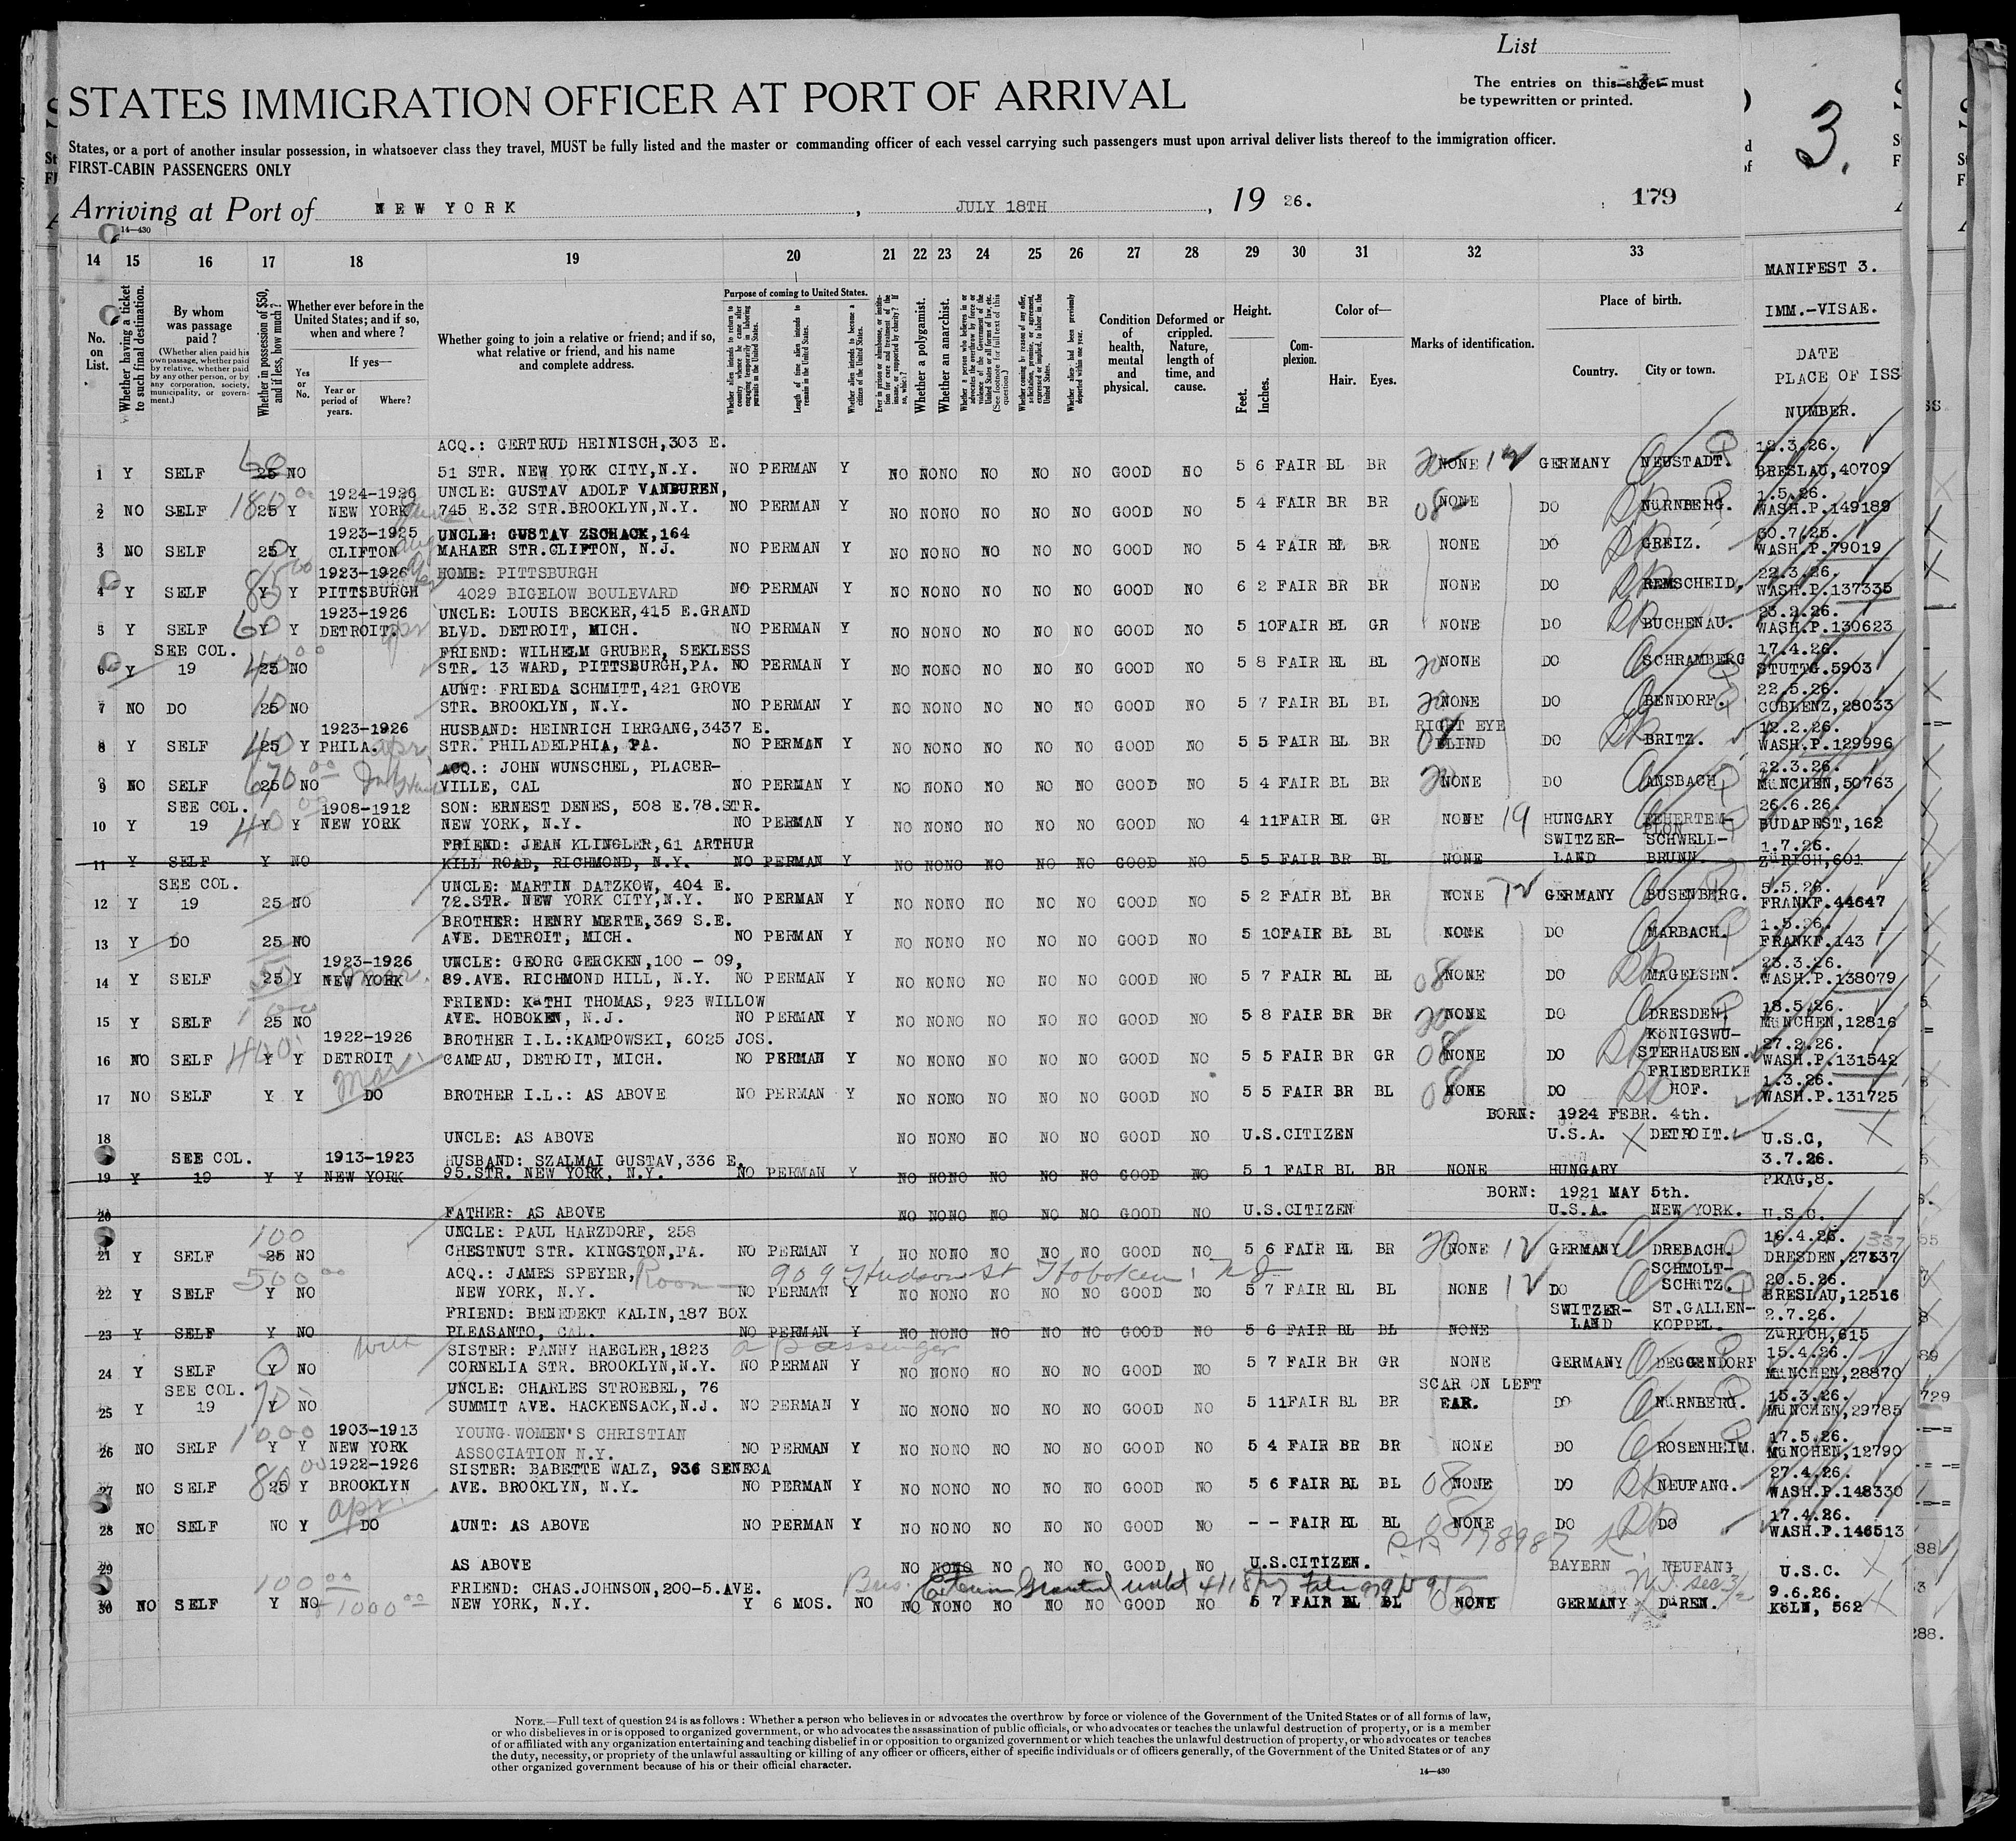 List
The entries on this sheet must
be typewritten or printed.
-3-
STATES IMMIGRATION OFFICER AT PORT OF ARRIVAL
3.
States, or a port of another insular possession, in whatsoever class they travel, MUST be fully listed and the master or commanding officer of each vessel carrying such passengers must upon arrival deliver lists thereof to the immigration officer.
FIRST-CABIN PASSENGERS ONLY
Arriving at Port of NEW YORK, JULY 18TH, 19 26. 179
14—430
14 15 16 17 18 19 20 21 22 23 24 25 26 27 28 29 30 31 32 33
MANIFEST 3.
IMM.-VISAE.
DATE
PLACE OF ISS
NUMBER.
No. on List.
Whether having a ticket to such final destination.
By whom was passage paid?
(Whether alien paid his own passage, whether paid by relative, whether paid by any other person, or by any corporation, society, municipality, or government.)
Whether in possession of $50, and if less, how much?
Whether ever before in the United States; and if so, when and where?
Yes or No.
If yes—
Year or period of years.
Where?
Whether going to join a relative or friend; and if so, what relative or friend, and his name and complete address.
Purpose of coming to United States.
Whether alien intends to return to country whence he came after engaging temporarily in laboring pursuits in the United States.
Length of time alien intends to remain in the United States.
Whether alien intends to become a citizen of the United States.
Whether a polygamist.
Whether an anarchist.
Condition of health, mental and physical.
Deformed or crippled. Nature, length of time, and cause.
Height.
Feet. Inches.
Complexion.
Color of—
Hair. Eyes.
Marks of identification.
Place of birth.
Country. City or town.
ACQ.: GERTRUD HEINISCH,303 E. 12.3.26.
1 Y SELF 25 NO 51 STR. NEW YORK CITY,N.Y. NO PERMAN Y NO NONO NO NO NO GOOD NO 5 6 FAIR BL BR NONE GERMANY NEUSTADT. BRESLAU,40709
1924-1926 UNCLE: GUSTAV ADOLF VANBUREN, 1.5.26.
2 NO SELF 25 Y NEW YORK 745 E.32 STR.BROOKLYN,N.Y. NO PERMAN Y NO NONO NO NO NO GOOD NO 5 4 FAIR BR BR NONE DO NüRNBERG. WASH.P.149189
1923-1925 UNCLE: GUSTAV ZSCHACK,164 30.7.25.
3 NO SELF 25 Y CLIFTON MAHAER STR.CLIFTON, N.J. NO PERMAN Y NO NONO NO NO NO GOOD NO 5 4 FAIR BL BR NONE DO GREIZ. WASH.P.79019
1923-1926 HOME: PITTSBURGH 22.3.26.
4 Y SELF Y Y PITTSBURGH 4029 BIGELOW BOULEVARD NO PERMAN Y NO NONO NO NO NO GOOD NO 6 2 FAIR BR BR NONE DO REMSCHEID. WASH.P.137335
1923-1926 UNCLE: LOUIS BECKER,415 E.GRAND 23.2.26.
5 Y SELF Y Y DETROIT. BLVD. DETROIT, MICH. NO PERMAN Y NO NONO NO NO NO GOOD NO 5 10FAIR BL GR NONE DO BUCHENAU. WASH.P.130623
SEE COL. FRIEND: WILHELM GRUBER, SEKLESS 17.4.26.
6 Y 19 25 NO STR. 13 WARD, PITTSBURGH,PA. NO PERMAN Y NO NONO NO NO NO GOOD NO 5 8 FAIR BL BL NONE DO SCHRAMBERG STUTTG.5903
AUNT: FRIEDA SCHMITT,421 GROVE 22.5.26.
7 NO DO 25 NO STR. BROOKLYN, N.Y. NO PERMAN Y NO NONO NO NO NO GOOD NO 5 7 FAIR BL BL NONE DO BENDORF. COBLENZ,28033
1923-1926 HUSBAND: HEINRICH IRRGANG,3437 E. RIGHT EYE 12.2.26.
8 Y SELF 25 Y PHILA. STR. PHILADELPHIA, PA. NO PERMAN Y NO NONO NO NO NO GOOD NO 5 5 FAIR BL BR BLIND DO BRITZ. WASH.P.129996
ACQ.: JOHN WUNSCHEL, PLACER- 22.3.26.
9 NO SELF 25 NO VILLE, CAL NO PERMAN Y NO NONO NO NO NO GOOD NO 5 4 FAIR BL BR NONE DO ANSBACH MüNCHEN,50763
SEE COL. 1908-1912 SON: ERNEST DENES, 508 E.78.STR. 26.6.26.
10 Y 19 Y Y NEW YORK NEW YORK, N.Y. NO PERMAN Y NO NONO NO NO NO GOOD NO 4 11FAIR BL GR NONE 19 HUNGARY FEHERTEM-PLON BUDAPEST,162
FRIEND: JEAN KLINGLER,61 ARTHUR SWITZER- SCHWELL- 1.7.26.
11 Y SELF Y NO KILL ROAD, RICHMOND, N.Y. NO PERMAN Y NO NONO NO NO NO GOOD NO 5 5 FAIR BR BL NONE LAND BRUNN. ZüRICH,601
SEE COL. UNCLE: MARTIN DATZKOW, 404 E. 5.5.26.
12 Y 19 25 NO 72.STR. NEW YORK CITY,N.Y. NO PERMAN Y NO NONO NO NO NO GOOD NO 5 2 FAIR BL BR NONE GERMANY BUSENBERG. FRANKF.44647
BROTHER: HENRY MERTE,369 S.E. 1.5.26.
13 Y DO 25 NO AVE. DETROIT, MICH. NO PERMAN Y NO NONO NO NO NO GOOD NO 5 10FAIR BL BL NONE DO MARBACH. FRANKF.143
1923-1926 UNCLE: GEORG GERCKEN,100 - 09, 23.3.26.
14 Y SELF 25 Y NEW YORK 89.AVE. RICHMOND HILL, N.Y. NO PERMAN Y NO NONO NO NO NO GOOD NO 5 7 FAIR BL BL NONE DO MAGELSEN. WASH.P.138079
FRIEND: KaTHI THOMAS, 923 WILLOW 18.5.26.
15 Y SELF 25 NO AVE. HOBOKEN, N.J. NO PERMAN Y NO NONO NO NO NO GOOD NO 5 8 FAIR BR BR NONE DO DRESDEN MüNCHEN,12816
1922-1926 BROTHER I.L.:KAMPOWSKI, 6025 JOS. KöNIGSWU- 27.2.26.
16 NO SELF Y Y DETROIT CAMPAU, DETROIT, MICH. NO PERMAN Y NO NONO NO NO NO GOOD NO 5 5 FAIR BR GR NONE DO STERHAUSEN. WASH.P.131542
FRIEDERIKE 1.3.26.
17 NO SELF Y Y DO BROTHER I.L.: AS ABOVE NO PERMAN Y NO NONO NO NO NO GOOD NO 5 5 FAIR BR BL NONE DO HOF. WASH.P.131725
BORN: 1924 FEBR. 4th.
18 UNCLE: AS ABOVE NO NONO NO NO NO GOOD NO U.S.CITIZEN U.S.A. DETROIT. U.S.C,
SEE COL. 1913-1923 HUSBAND: SZALMAI GUSTAV,336 E. 3.7.26.
19 Y 19 Y Y NEW YORK 95.STR. NEW YORK, N.Y. NO PERMAN Y NO NONO NO NO NO GOOD NO 5 1 FAIR BL BR NONE HUNGARY PRAG,8.
BORN: 1921 MAY 5th.
20 FATHER: AS ABOVE NO NONO NO NO NO GOOD NO U.S.CITIZEN U.S.A. NEW YORK. U.S.C.
100 UNCLE: PAUL HARZDORF, 258 16.4.26.
21 Y SELF 25 NO CHESTNUT STR. KINGSTON,PA. NO PERMAN Y NO NONO NO NO NO GOOD NO 5 6 FAIR BL BR NONE GERMANY DREBACH. DRESDEN,27537
500 ACQ.: JAMES SPEYER, Room 909 Hudson St Hoboken N J SCHMOLT- 20.5.26.
22 Y SELF Y NO NEW YORK, N.Y. NO PERMAN Y NO NONO NO NO NO GOOD NO 5 7 FAIR BL BL NONE DO SCHüTZ. BRESLAU,12516
FRIEND: BENEDEKT KALIN,187 BOX SWITZER- ST.GALLEN- 2.7.26.
23 Y SELF Y NO PLEASANTO, CAL. NO PERMAN Y NO NONO NO NO NO GOOD NO 5 6 FAIR BL BL NONE LAND KOPPEL. ZüRICH,615
with SISTER: FANNY HAEGLER,1823 a passenger 15.4.26.
24 Y SELF Y NO CORNELIA STR. BROOKLYN,N.Y. NO PERMAN Y NO NONO NO NO NO GOOD NO 5 7 FAIR BR GR NONE GERMANY DEGGENDORF MüNCHEN,28870
SEE COL. UNCLE: CHARLES STROEBEL, 76 SCAR ON LEFT 15.3.26.
25 Y 19 Y NO SUMMIT AVE. HACKENSACK,N.J. NO PERMAN Y NO NONO NO NO NO GOOD NO 5 11FAIR BL BR EAR. DO NüRNBERG. MüNCHEN,29785
1000 1903-1913 YOUNG WOMEN'S CHRISTIAN 17.5.26.
26 NO SELF Y Y NEW YORK ASSOCIATION N.Y. NO PERMAN Y NO NONO NO NO NO GOOD NO 5 4 FAIR BR BR NONE DO ROSENHEIM. MüNCHEN,12790
1922-1926 SISTER: BABETTE WALZ, 936 SENECA 27.4.26.
27 NO SELF 25 Y BROOKLYN AVE. BROOKLYN, N.Y. NO PERMAN Y NO NONO NO NO NO GOOD NO 5 6 FAIR BL BL NONE DO NEUFANG. WASH.P.148330
17.4.26.
28 NO SELF NO Y DO AUNT: AS ABOVE NO PERMAN Y NO NONO NO NO NO GOOD NO - - FAIR BL BL NONE DO DO WASH.P.146513
29 AS ABOVE NO NONO NO NO NO GOOD NO U.S.CITIZEN. BAYERN NEUFANG U.S.C.
FRIEND: CHAS.JOHNSON,200-5.AVE. 9.6.26.
30 NO SELF Y NO NEW YORK, N.Y. Y 6 MOS. NO NO NONO NO NO NO GOOD NO 5 7 FAIR BL BL NONE GERMANY DüREN. KöLN, 562
NOTE.—Full text of question 24 is as follows: Whether a person who believes in or advocates the overthrow by force or violence of the Government of the United States or of all forms of law,
or who disbelieves in or is opposed to organized government, or who advocates the assassination of public officials, or who advocates or teaches the unlawful destruction of property, or is a member
of or affiliated with any organization entertaining and teaching disbelief in or opposition to organized government or which teaches the unlawful destruction of property, or who advocates or teaches
the duty, necessity, or propriety of the unlawful assaulting or killing of any officer or officers, either of specific individuals or of officers generally, of the Government of the United States or of any
other organized government because of his or their official character.
14—430